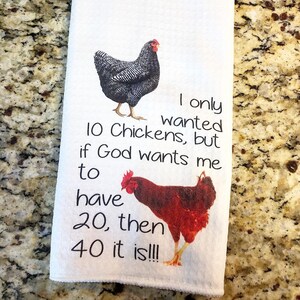 I only
wanted
10 Chickens, but
if God wants me
to
have
20, then
40 it is!!!